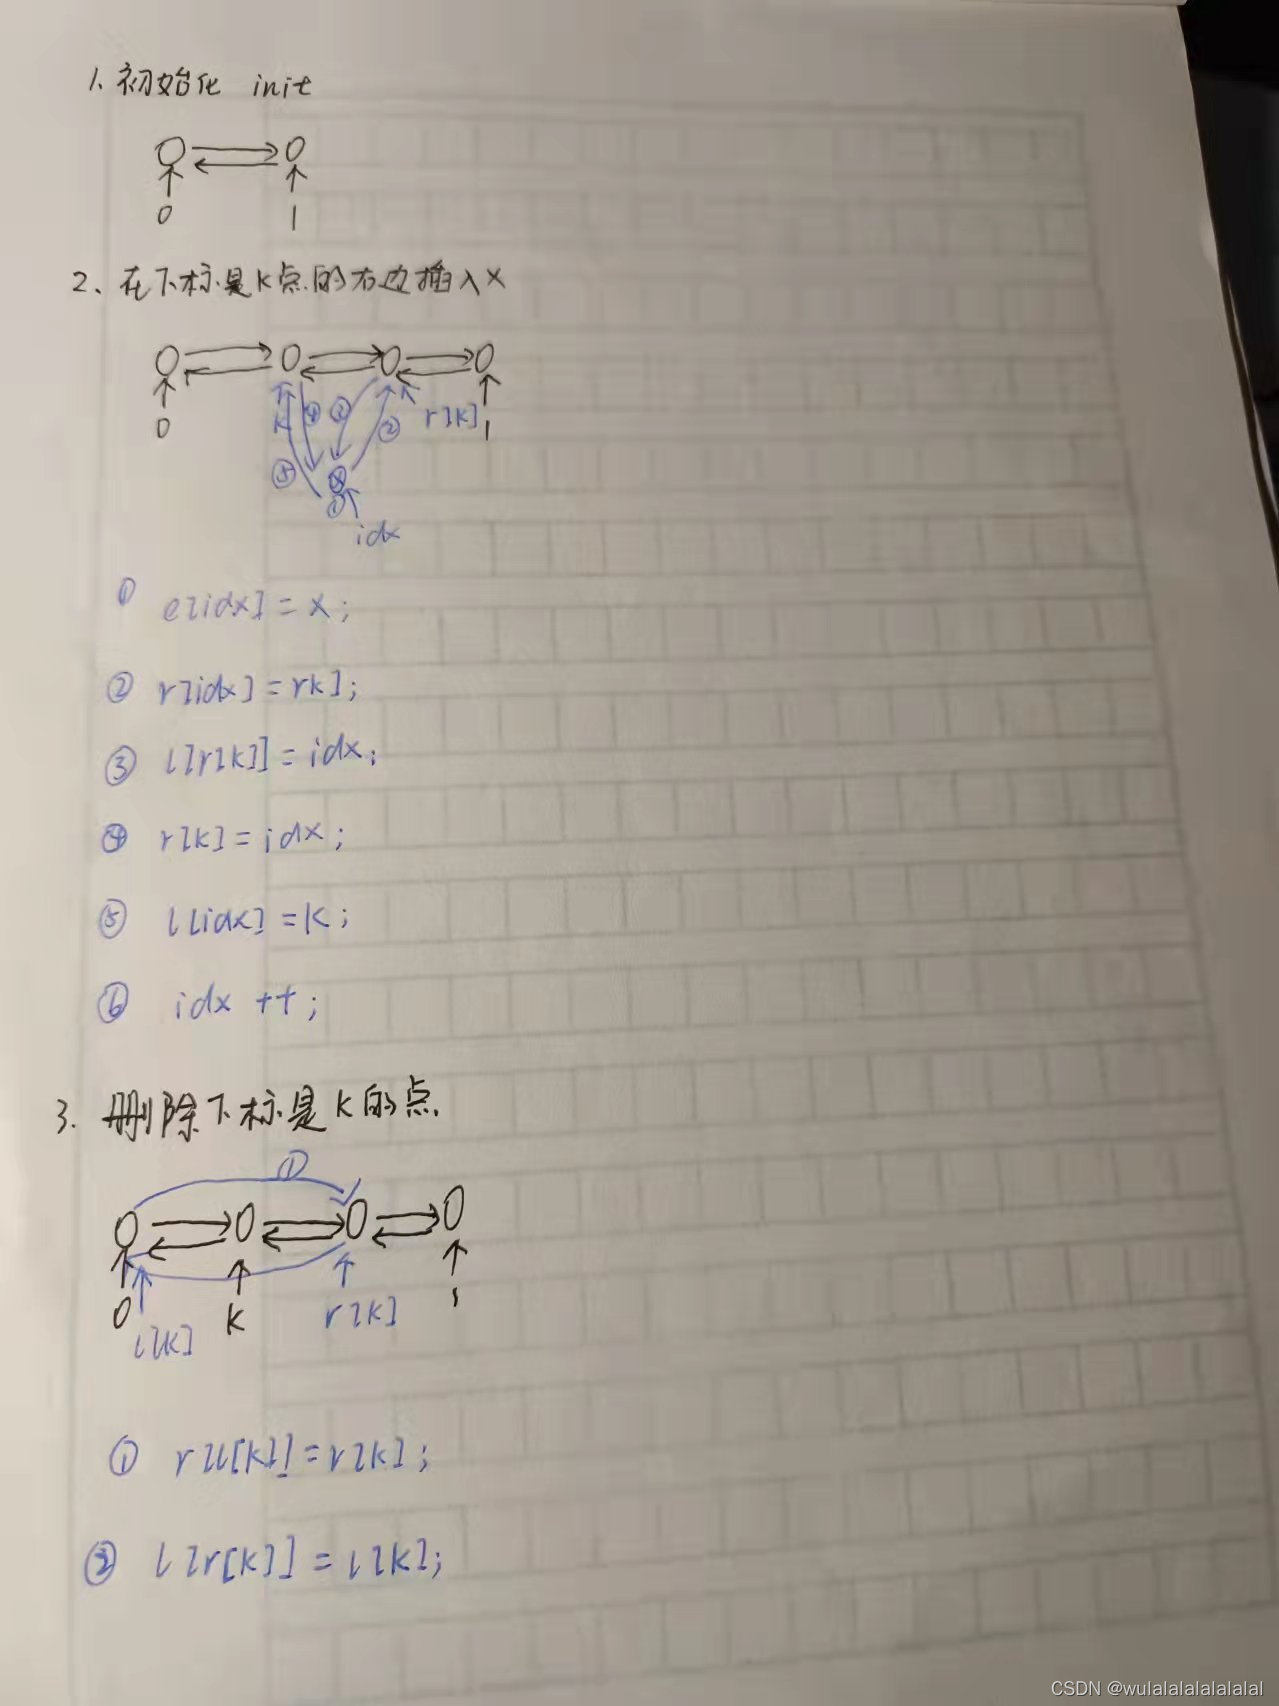 1. 初始化 init
0 1
2、在下标是K点的右边插入X
0 K ④ ③ ② r[K] 1
⑤ X
①
idx
① e[idx] = x;
② r[idx] = rk];
③ l[r[k]] = idx;
④ r[k] = idx;
⑤ l[idx] = k;
⑥ idx ++;
3. 删除下标是K的点
①
0 K r[k] 1
l[k]
① r[l[k]] = r[k];
② l[r[k]] = l[k];
CSDN @wulalalalalalalal